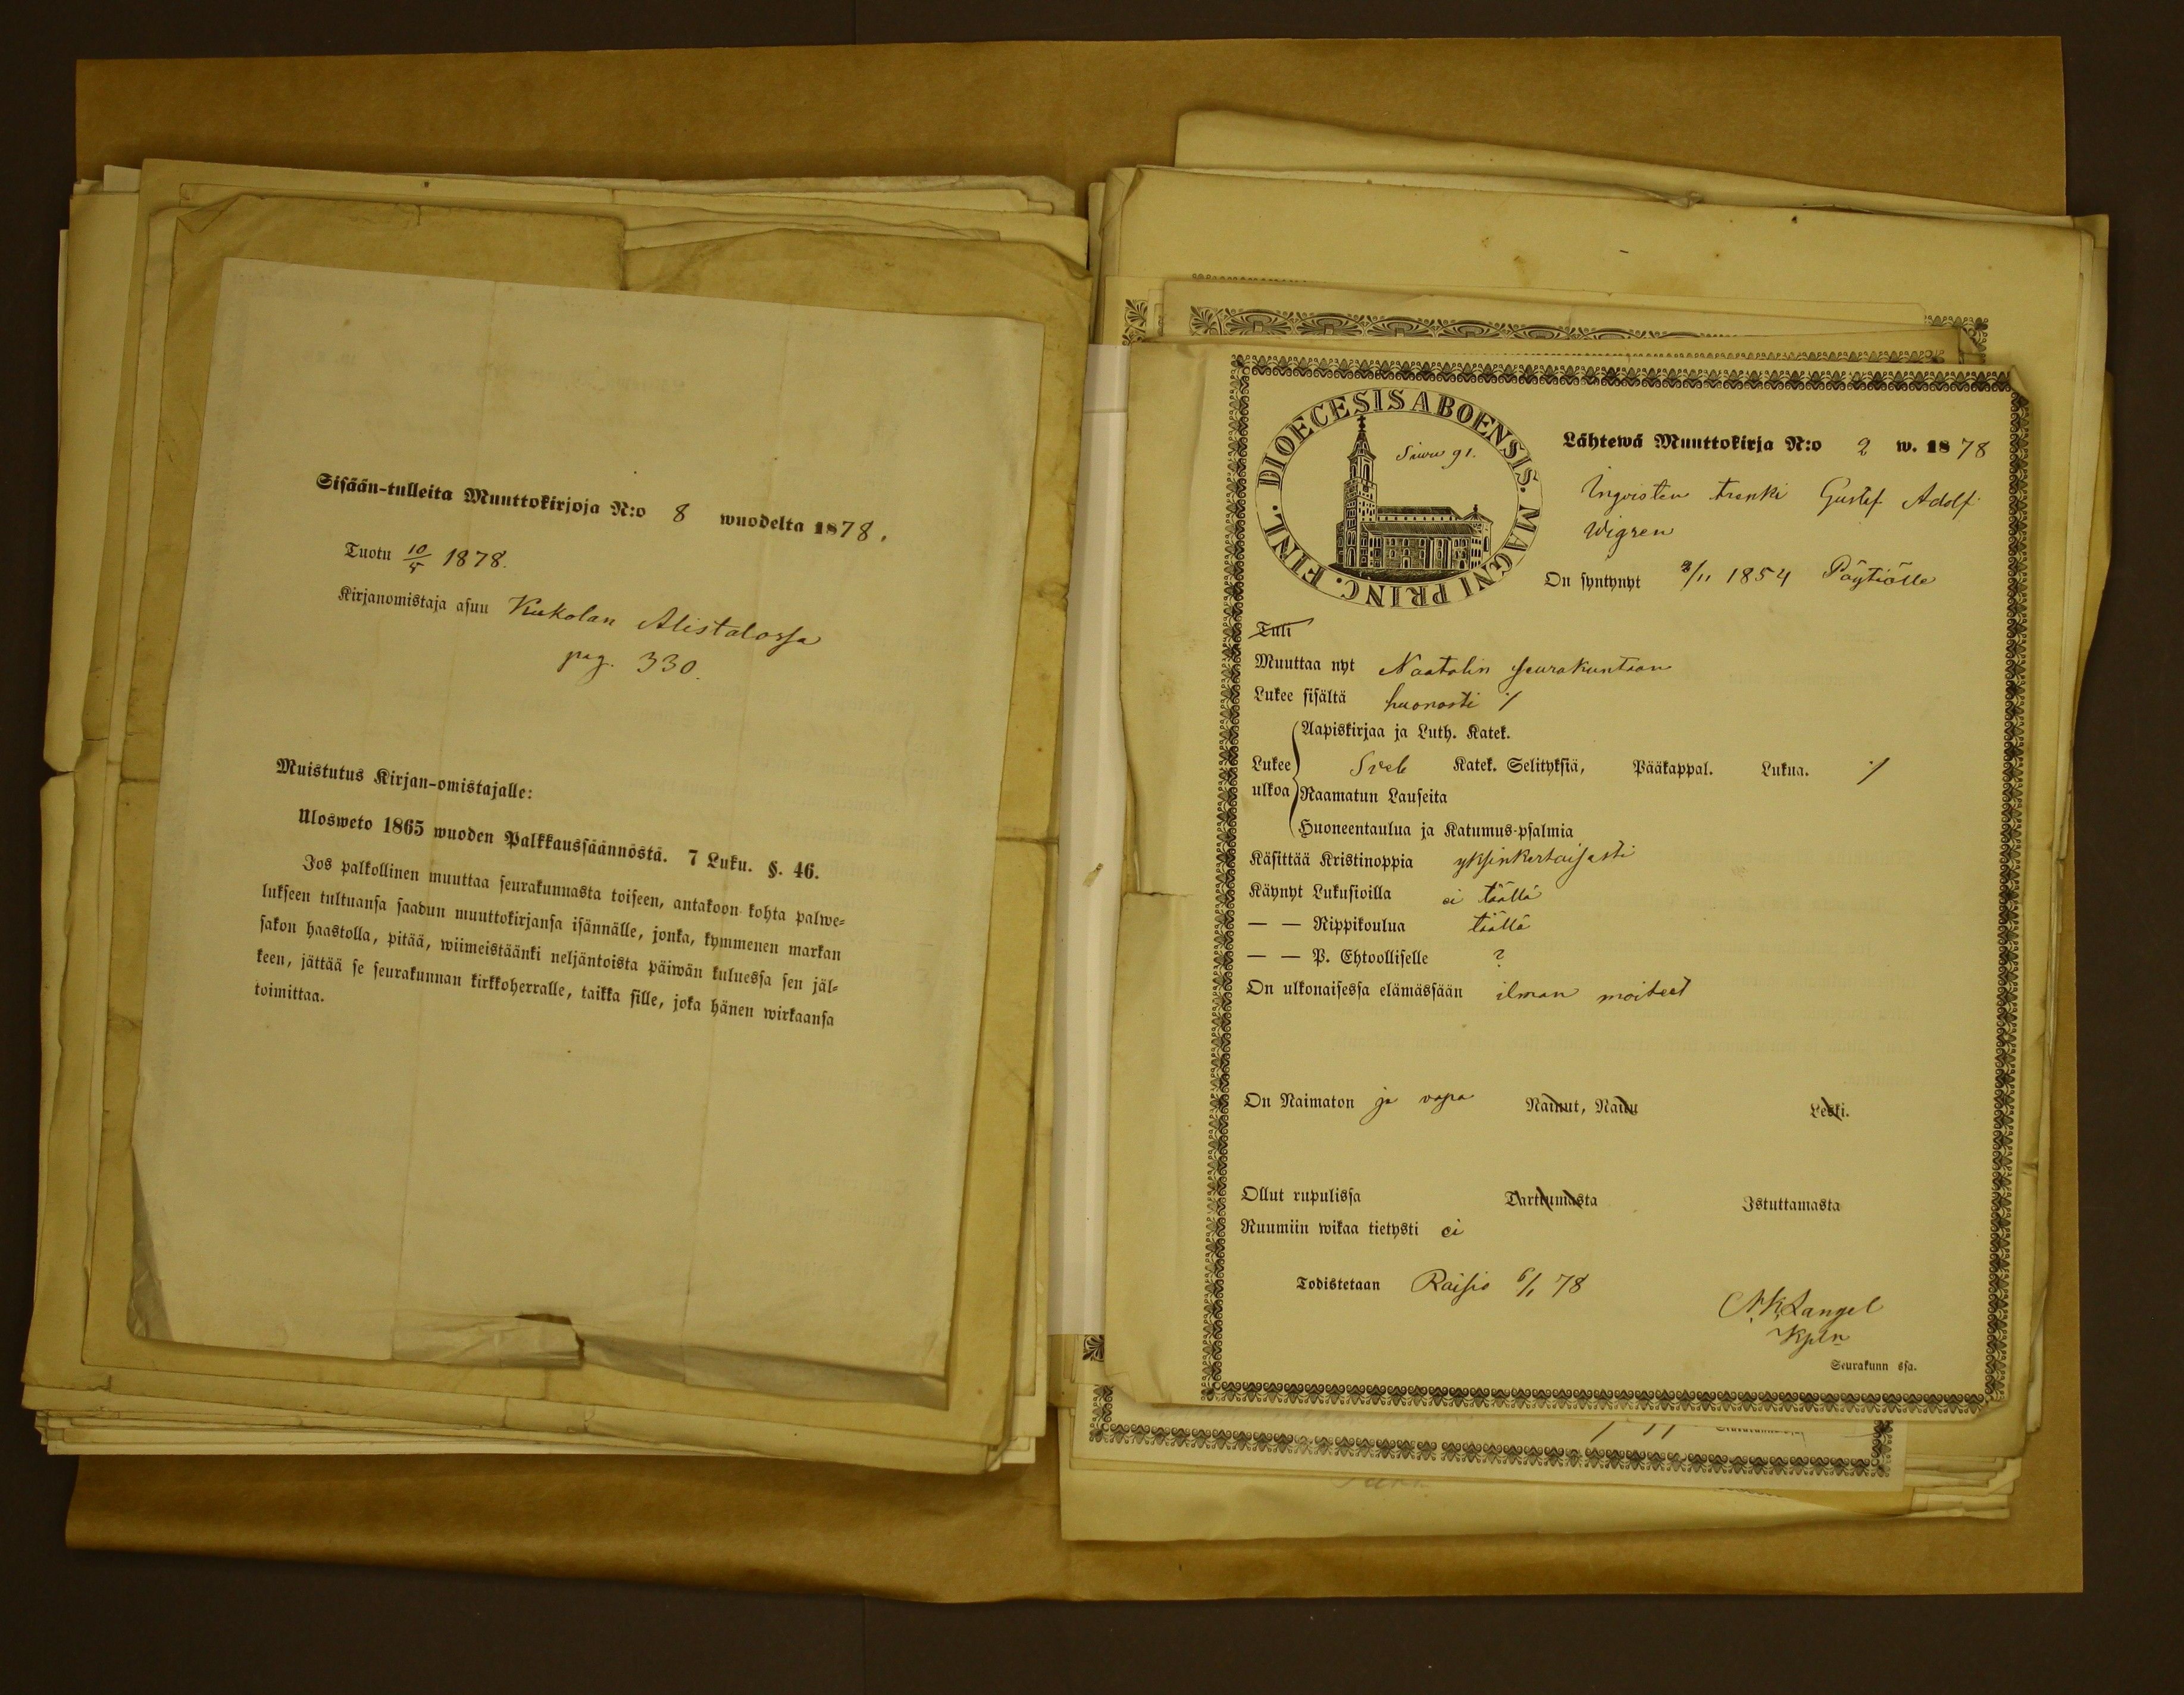 Sisään-tulleita Muuttokirjoja N:o 8 wuodelta 1878.
Tuotu 10/5 1878.
Kirjanomistaja asuu Kukolan Alistalossa
pag. 330.
Muistutus Kirjan-omistajalle:
Ulosweto 1865 wuoden Palkkaussäännöstä. 7 Luku. §. 46.
Jos palkollinen muuttaa seurakunnasta toiseen, antakoon kohta palwe-
lukseen tultuansa saadun muuttokirjansa isännälle, jonka, kymmenen markan
sakon haastolla, pitää, wiimeistäänki neljäntoista päiwän kuluessa sen jäl-
keen, jättää se seurakunnan kirkkoherralle, taikka sille, joka hänen wirkaansa
toimittaa.
FINL. DIOECESIS ABOENSIS. MAGNI PRINC.
Siwu 91.
Lähtewä Muuttokirja N:o 2 w. 1878
trenki Gustef Adolf
Wigren
On syntynyt /11 1854 Pöytiölle
Tuli
Muuttaa nyt Naatalin seurakuntaan
Lukee sisältä huonosti ./
Aapiskirjaa ja Luth. Katek.
Lukee ulkoa Sveb Katek. Selityksiä, Pääkappal. Lukua. ./
Raamatun Lauseita
Huoneentaulua ja Katumus-psalmia
Käsittää Kristinoppia yksinkertaisesti
Käynyt Lukusioilla ei täällä
— — Rippikoulua täällä
— — P. Ehtoolliselle ?
On ulkonaisessa elämässään ilman moitteet
On Naimaton ja vapa Nainut, Naitu Leski.
Ollut rupulissa Tarttumasta Istuttamasta
Ruumiin wikaa tietysti ei
Todistetaan Raisio 6/1 78
Langel
Kpln
Seurakunn ssa.